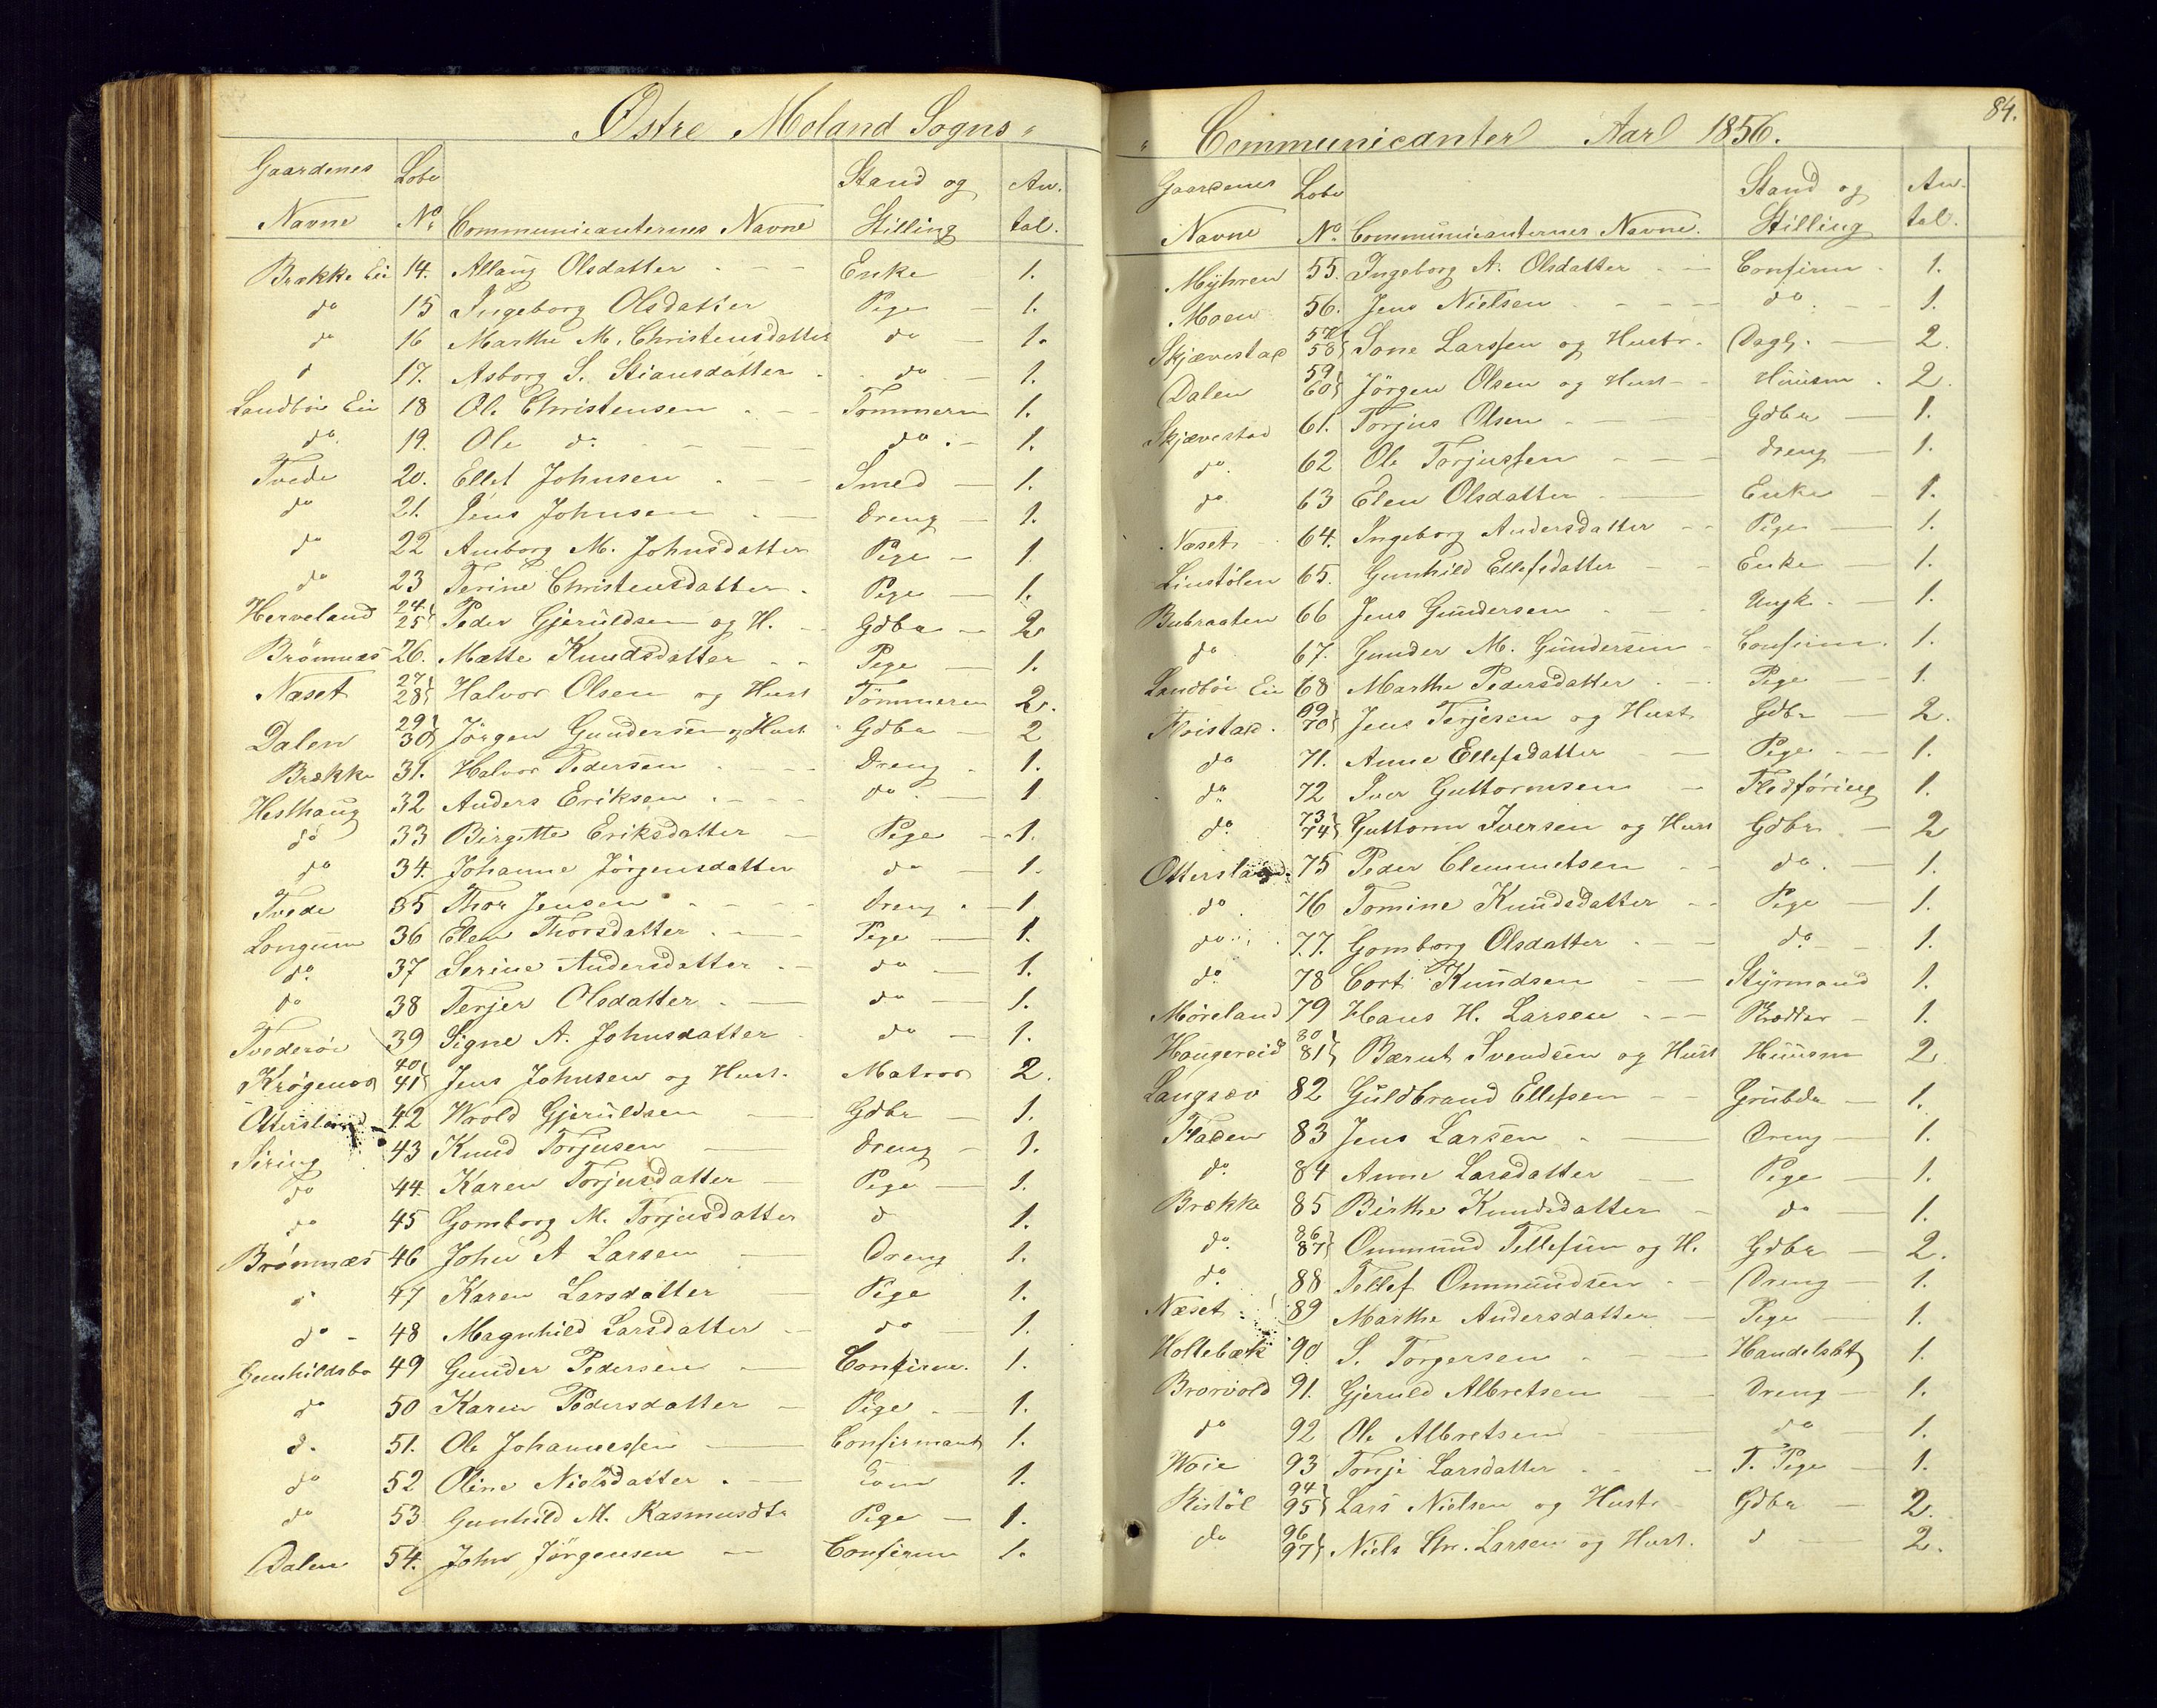 Østre Moland Sogns
Gaardenes Løbe Stand og An-
Navne No. Communicanternes Navne Stilling tal.
Brække Eie 14. Allaug Olsdatter Enke 1.
do 15 Ingeborg Olsdatter Pige 1.
do 16 Marthe M. Christensdatter do 1.
d 17. Asborg S. Stiansdatter do 1.
Landböe Eie 18 Ole Christensen Tømmerm 1.
do. 19. Ole do. do. 1.
Tvede 20. Ellef Johnsen Smed 1.
do 21. Jens Johnsen Dreng 1.
do 22 Amborg M. Johnsdatter Pige 1
do 23 Terine Christensdatter Pige 1.
Herveland 24. 25 Peder Gjeruldsen og H. Gdbr 2
Brömnæs 26. Mætte Knudsdatter Pige 1.
Næset 27 28 Halvor Olsen og Hust Tömmerm 2.
Dalen 29 30 Jörgen Gundersen og Hust Gdbr 2
Brække 31. Halvor Pedersen Dreng 1.
Hesthaug 32 Anders Eriksen do 1
do 33 Birgitte Eriksdatter Pige 1.
do 34. Johanne Jörgensdatter do 1.
Tvede 35 Thor Jensen Dreng 1
Longum 36 Elen Thorsdatter Pige 1.
do. 37 Serine Andersdatter do 1.
do 38 Terjer Olsdatter do 1.
Tvederöe 39 Signe A. Johnsdatter do 1.
Krøgenes 40 41 Jens Johnsen og Hust. Matros 2.
Ottersland 42 Wrold Gjeruldsen Gdbr 1.
Siring 43 Knud Torjusen Dreng 1.
do 44. Karen Torjusdatter Pige 1.
do 45 Gomborg M. Torjusdatter d 1.
Brömnæs 46 John A Larsen Dreng 1.
d 47 Karen Larsdatter Pige 1.
do 48 Magnhild Larsdatter do 1.
Gunhildsbo 49 Gunder Pedersen Confirm. 1.
do 50 Karen Pedersdatter Pige 1.
d. 51. Ole Johannessen Confirmant 1.
do 52 Oline Nielsdatter 1.
do 53 Gunhild M. Rasmusdtr Pige 1.
Dalen 54. John Jörgensen Confirm 1.
84.
Communicanter Aar 1856.
Gaardenes Løbe Stand og An-
Navne No. Communicanternes Navne. Stilling tal.
Myhren 55. Ingeborg A. Olsdatter Confirm. 1.
Moen 56. Jens Nielsen do. 1.
Skjævestad 57 58 Sone Larssen og Hustr. Dagl. 2.
Dalen 59 60 Jörgen Olsen og Hust Huusm. 2.
Skjævestad 61. Torjus Olsen Gdbr 1.
do. 62 Ole Torjussen Dreng 1.
do 63 Elen Olsdatter Enke 1.
Næset 64. Ingeborg Andersdatter Pige 1.
Linstölen 65. Gunhild Ellefsdatter Enke 1.
Bubraaten 66 Jens Gundersen Ungk. 1.
do 67. Gunder M. Gundersen Confirm. 1.
Landböe Eie 68 Marthe Pedersdatter Pige 1.
Flvistad. 69 70 Jens Terjesen og Hust Gdbr 2.
do 71. Anne Ellefsdatter Pige 1.
do. 72 Iver Guttormsen Flodføring 1.
do. 73 74 Guttorm Iversen og Hust Gdbr 2
Ottersland. 75 Peder Clemmetsen do. 1.
do 76 Tomine Knudsdatter Pige 1.
do 77. Gomborg Olsdatter do. 1.
do. 78 Cort Knudsen Styrmand 1.
Møreland 79 Hans H. Larsen 1.
Haugereid 80 81 Bærnt Svendsen og Hust Huusm 2.
Langsæv 82 Guldbrand Ellefsen 1.
Fladen 83 Jens Larsen Dreng 1.
do. 84 Anne Larsdatter Pige 1.
Brække 85 Birthe Knudsdatter do 1.
do. 86 87 Ommund Tellefsen og H. Gdbr 2.
do. 88 Tellef Ommundsen Dreng 1.
Næset 89 Marthe Andersdatter Pige 1.
Holtebæk 90 S. Torgersen Handelsbt 1.
Brorvold 91. Gjeruld Albretsen Dreng 1.
do 92 Ole Albretsen do 1.
Woie 93 Tonje Larsdatter T. Pige 1.
Ristöl 94 95 Lars Nielsen og Hustr Gdbr 2.
do 96 97 Niels Chr. Larsen og Hust. d 2.